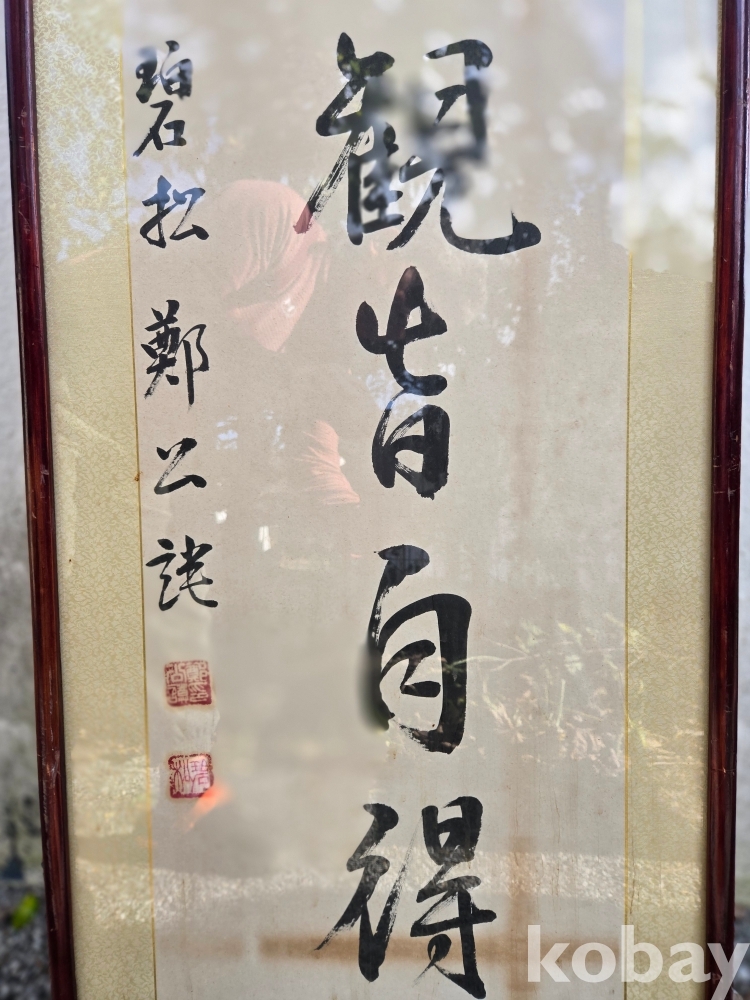 観皆自得
碧松鄭公
kobay